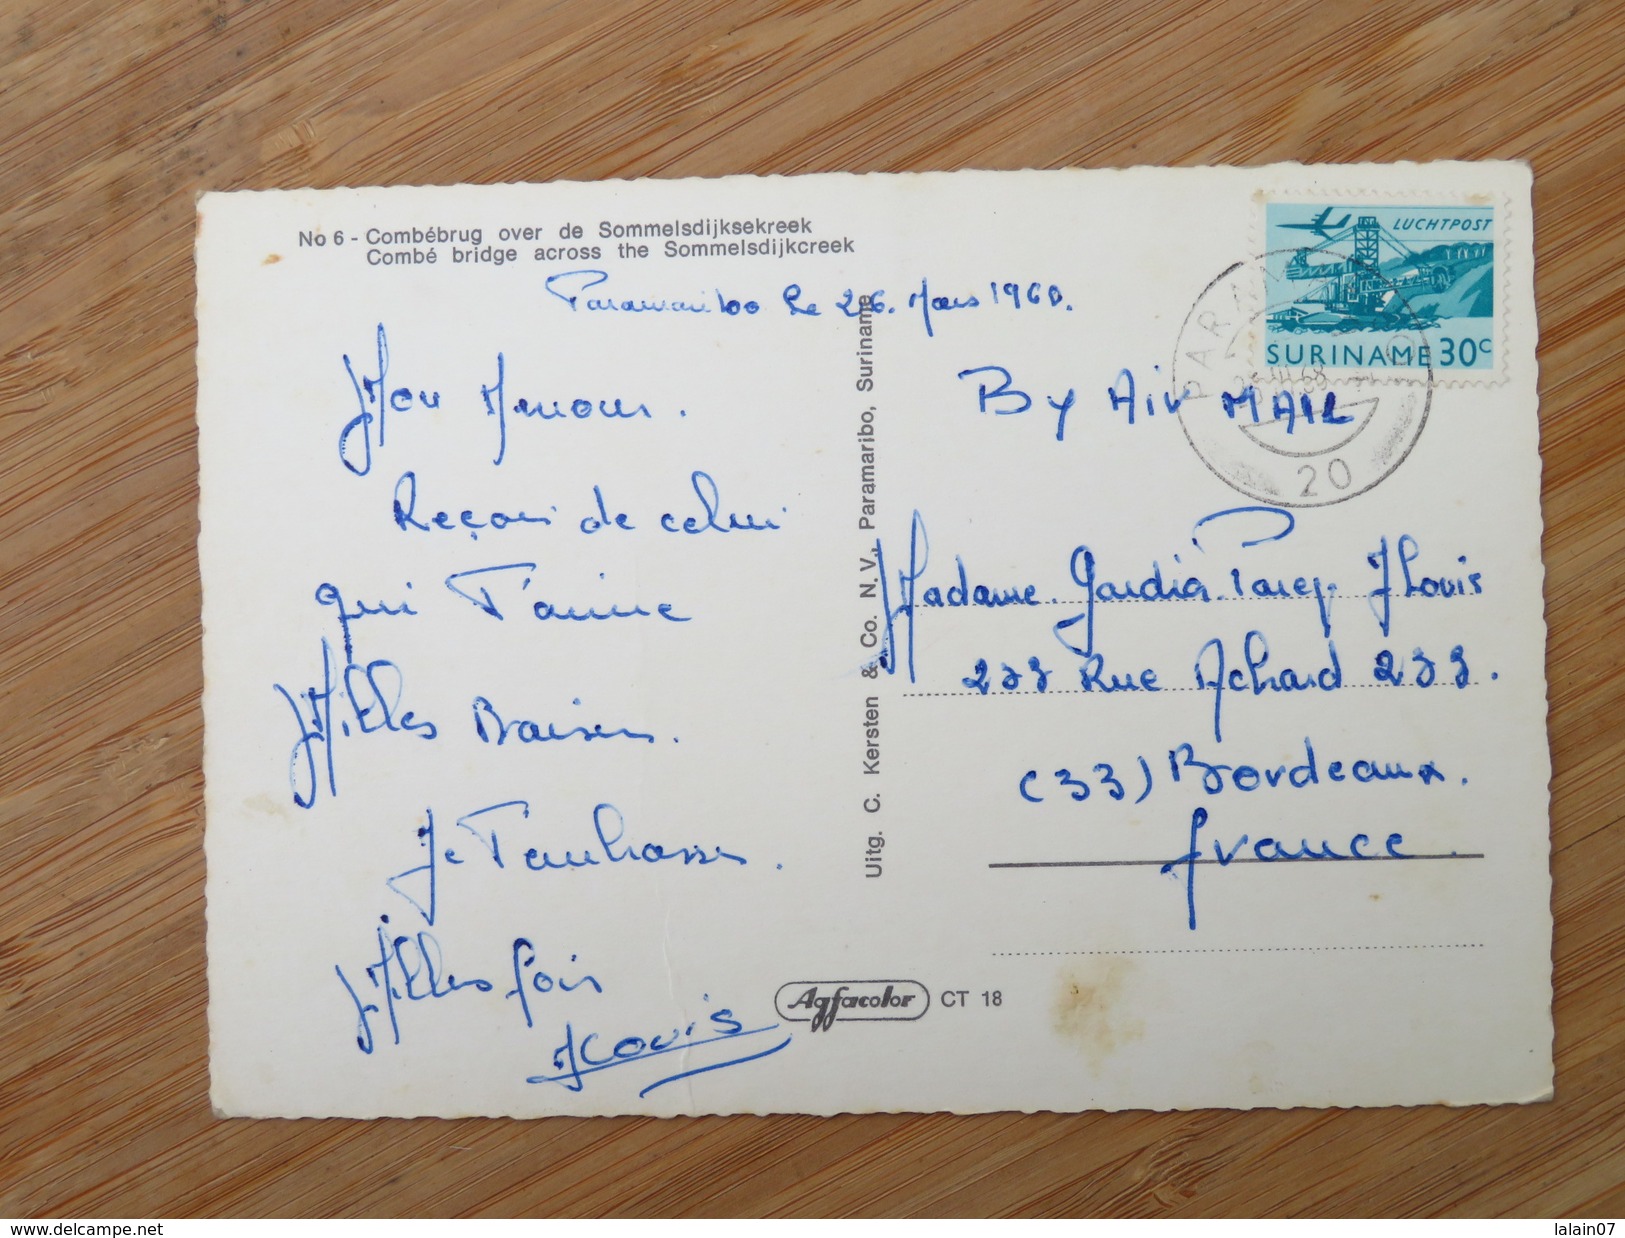 No 6 - Combébrug over de Sommelsdijksekreek
Combé bridge across the Sommelsdijkcreek
Paramaribo le 26. Mars 1968.
Mon Amour.
Reçois de celui
qui T'aime
Milles Baisers.
Je T'embrasse
Milles fois
JLouis
Uitg. C. Kersten & Co. N. V., Paramaribo, Suriname
LUCHTPOST
SURINAME 30c
PARAMARIBO
26 III 68
20
By Air MAIL
Madame JLouis
233 Rue Achard 233.
(33) Bordeaux.
france.
Agfacolor CT 18
www.delcampe.net
lalain07